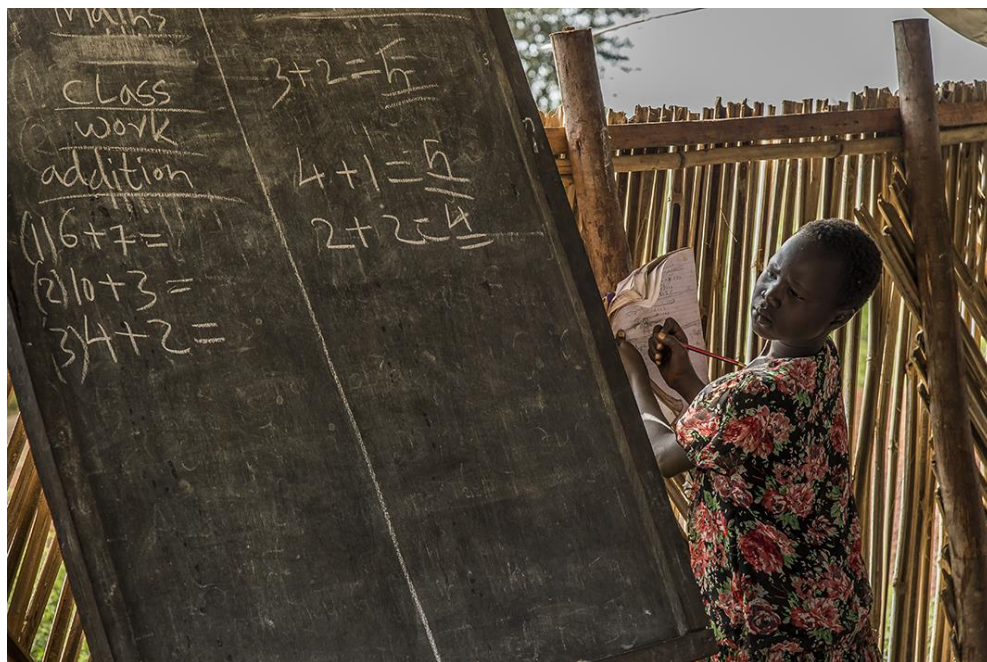 Maths
class
work
addition
(1) 6+7=
(2) 10+3=
3) 4+2=
3+2=5
4+1=5
2+2=4